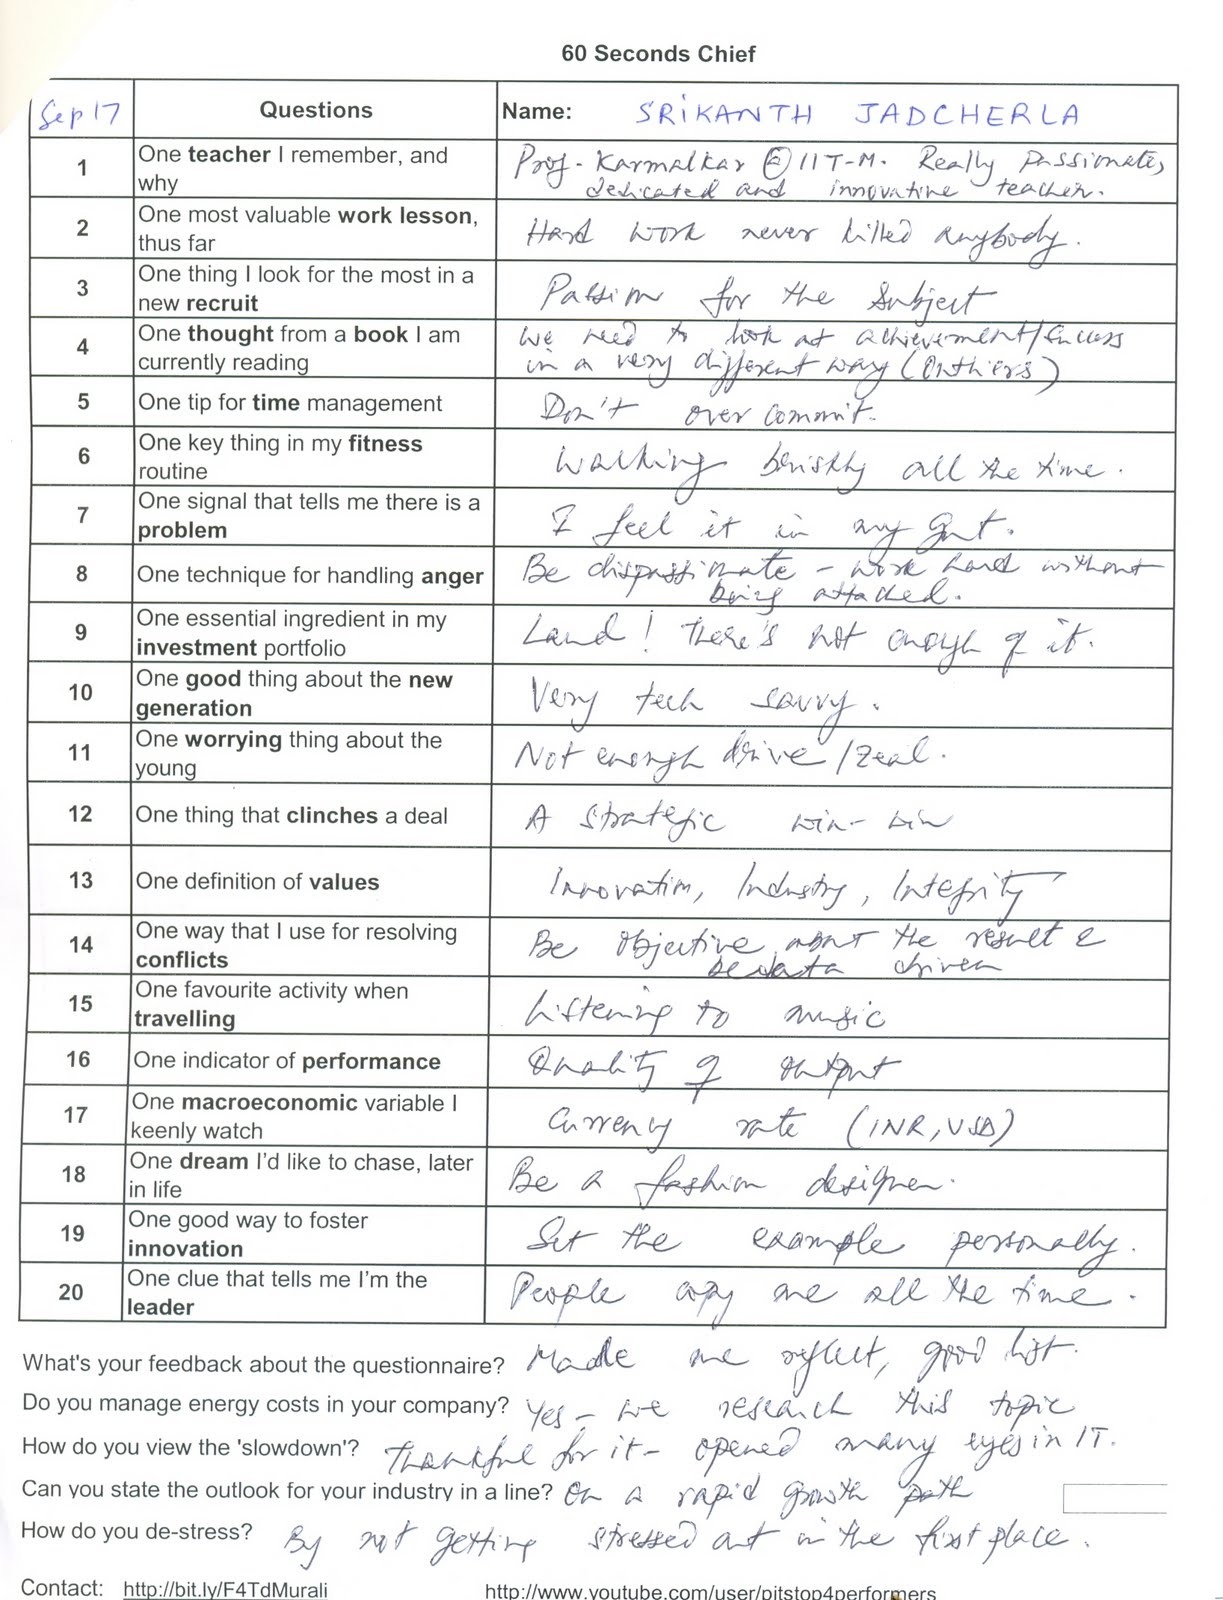 60 Seconds Chief
Sep 17 Questions Name: SRIKANTH JADCHERLA
1 One teacher I remember, and why
Prof. Karmalkar @ IIT-M. Really passionate,
dedicated and innovative teacher.
2 One most valuable work lesson, thus far
Hard work never killed anybody.
3 One thing I look for the most in a new recruit
Passion for the subject
4 One thought from a book I am currently reading
We need to look at achievement/success
in a very different way (Outliers)
5 One tip for time management
Don't over commit.
6 One key thing in my fitness routine
Walking briskly all the time.
7 One signal that tells me there is a problem
I feel it in my gut.
8 One technique for handling anger
Be dispassionate - work hard without
being attached.
9 One essential ingredient in my investment portfolio
Land! There's not enough of it.
10 One good thing about the new generation
Very tech savvy.
11 One worrying thing about the young
Not enough drive/zeal.
12 One thing that clinches a deal
A strategic win-win
13 One definition of values
Innovation, Industry, Integrity
14 One way that I use for resolving conflicts
Be objective about the result &
be data driven
15 One favourite activity when travelling
Listening to music
16 One indicator of performance
Quality of output
17 One macroeconomic variable I keenly watch
Currency rate (INR, USD)
18 One dream I'd like to chase, later in life
Be a fashion designer.
19 One good way to foster innovation
Set the example personally.
20 One clue that tells me I'm the leader
People copy me all the time.
What's your feedback about the questionnaire? Made me reflect, good list.
Do you manage energy costs in your company? Yes - we research this topic
How do you view the 'slowdown'? Thankful for it - opened many eyes in IT.
Can you state the outlook for your industry in a line? On a rapid growth path
How do you de-stress? By not getting stressed out in the first place.
Contact: http://bit.ly/F4TdMurali http://www.youtube.com/user/pitstop4performers